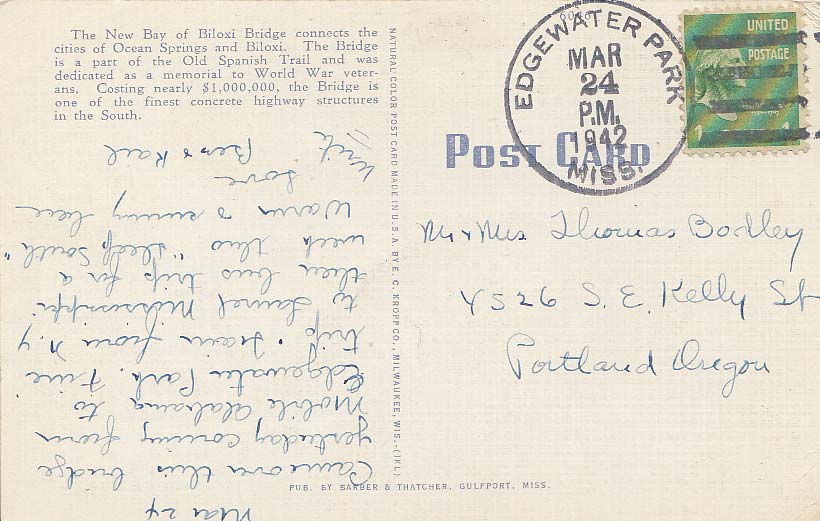 The New Bay of Biloxi Bridge connects the
cities of Ocean Springs and Biloxi. The Bridge
is a part of the Old Spanish Trail and was
dedicated as a memorial to World War veter-
ans. Costing nearly $1,000,000, the Bridge is
one of the finest concrete highway structures
in the South.
NATURAL COLOR POST CARD MADE IN U.S.A. BY E. C. KROPP CO., MILWAUKEE, WIS.-(IKL)
EDGEWATER PARK
MAR
24
P.M.
1942
MISS.
UNITED
POSTAGE
1
POST CARD
Mr & Mrs Thomas Bodley
4526 S. E. Kelly St
Portland Oregon
PUB. BY BARBER & THATCHER, GULFPORT, MISS.
Mar 24
Came over this bridge
yesterday coming from
Mobile Alabama to
Edgewater Park. Fine
trip. Train from N.Y
to Laurel Mississippi
then bus trip for a
week thru "deep South"
Warm & sunny here
Love
Bess & Karl
Write